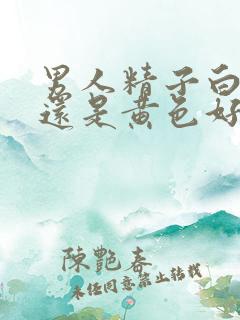 男人精子白
還是黄色好
陳艷春
未经同意禁止转载